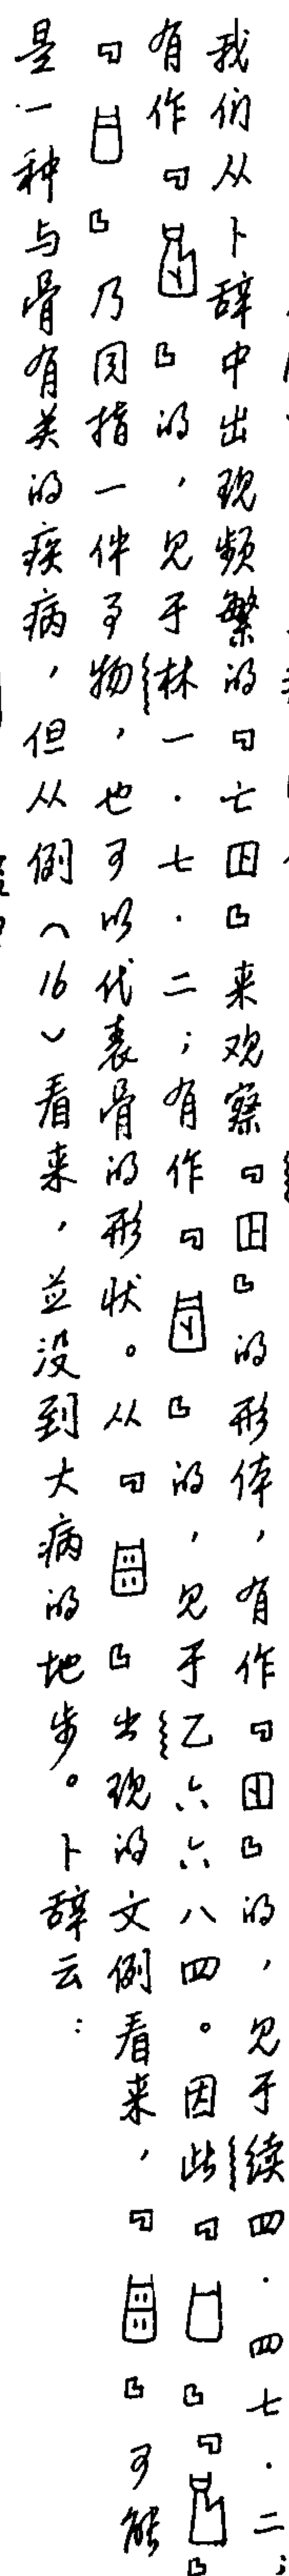 我们从卜辞中出现频繁的﹃亡田﹄来观察﹃田﹄的形体，有作﹃田﹄的，见于续四·四七·二；
有作﹃﹄的，见于林一·七·二；有作﹃﹄的，见于乙六六八四。因此﹃﹄﹃﹄
﹃﹄乃同指一件事物，也可以代表骨的形状。从﹃﹄出现的文例看来，﹃﹄可能
是一种与骨有关的疾病，但从例（16）看来，並没到大病的地步。卜辞云：